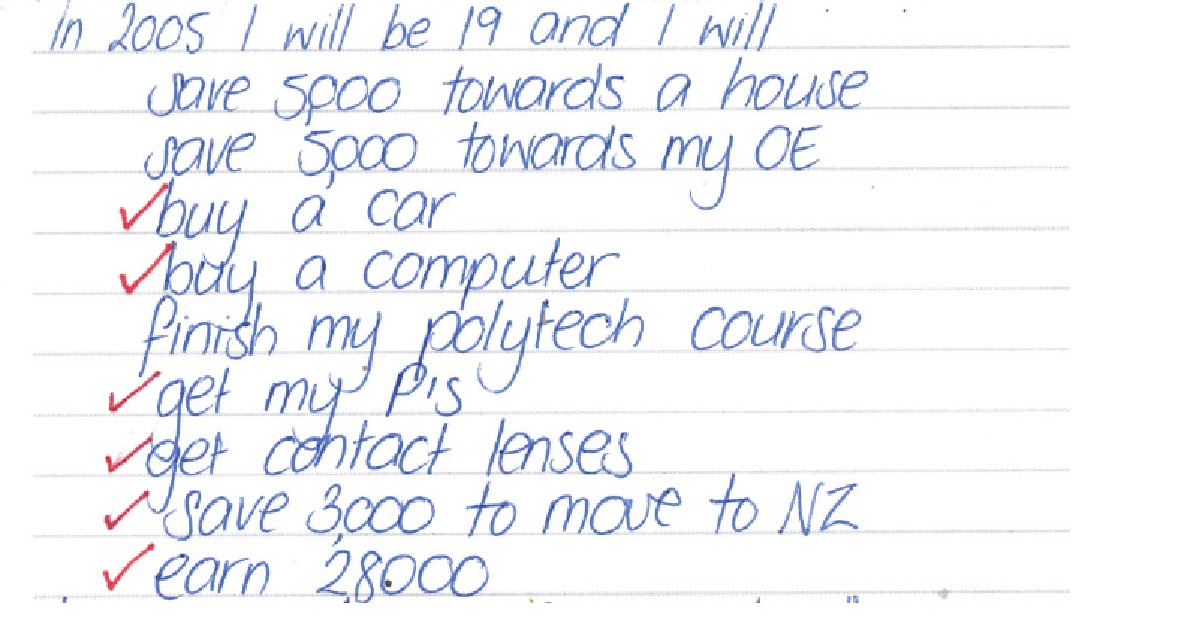 In 2005 I will be 19 and I will
save 5,000 towards a house
save 5,000 towards my OE
✓buy a car
✓buy a computer
finish my polytech course
✓get my P's
✓get contact lenses
✓save 3,000 to move to NZ
✓earn 28000